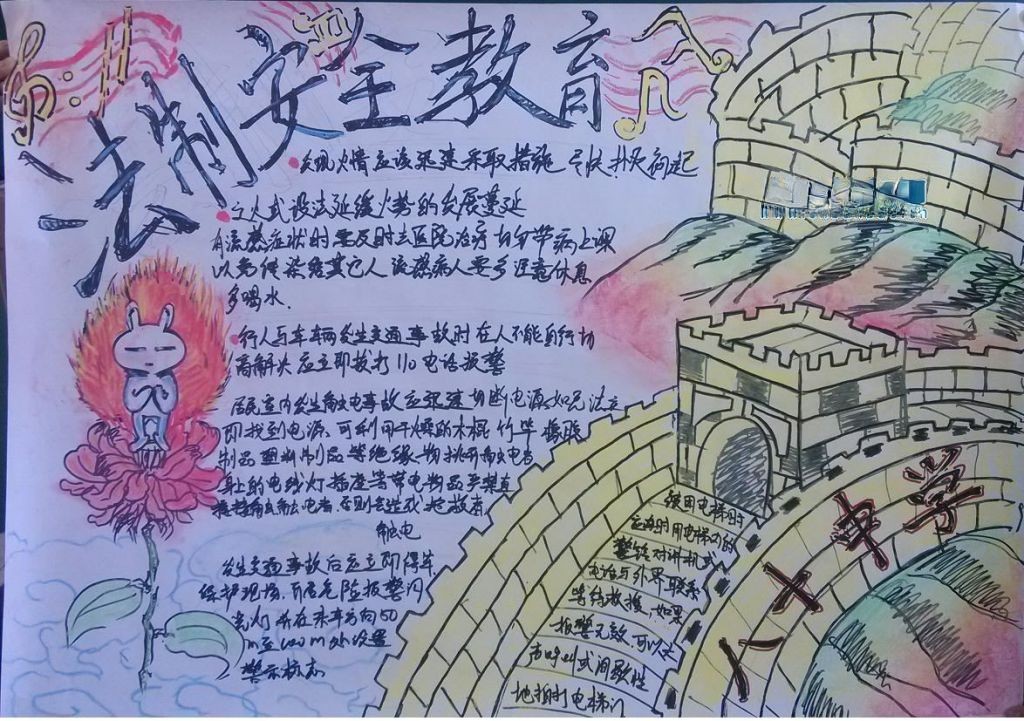 法制安全教育
发现火情应该迅速采取措施 尽快扑灭初起
火 或设法延缓火势的发展蔓延
有流感症状时要及时去医院治疗切勿带病上课
以免传染给其它人流感病人要多注意休息
多喝水.
行人与车辆发生交通事故时在人不能自行协
商解决应立即拨打110电话报警
居民室内发生触电事故应迅速切断电源.如无法立
即找到电源.可利用干燥的木棍 竹竿 橡胶
制品 塑料制品等绝缘物挑开触电者
身上的电线灯插座等带电物品严禁直
接接触触电者 否则会造成抢救者
触电
发生交通事故后应立即停车
保护现场.开启危险报警闪
光灯 并在来车方向50
m至100m处设置
警示标志
使用电梯时
应及时用电梯内的
警铃 对讲机或
电话与外界联系
等待救援.如果
报警无效.可以大
声呼叫或间歇性
地拍打电梯门
八十中学